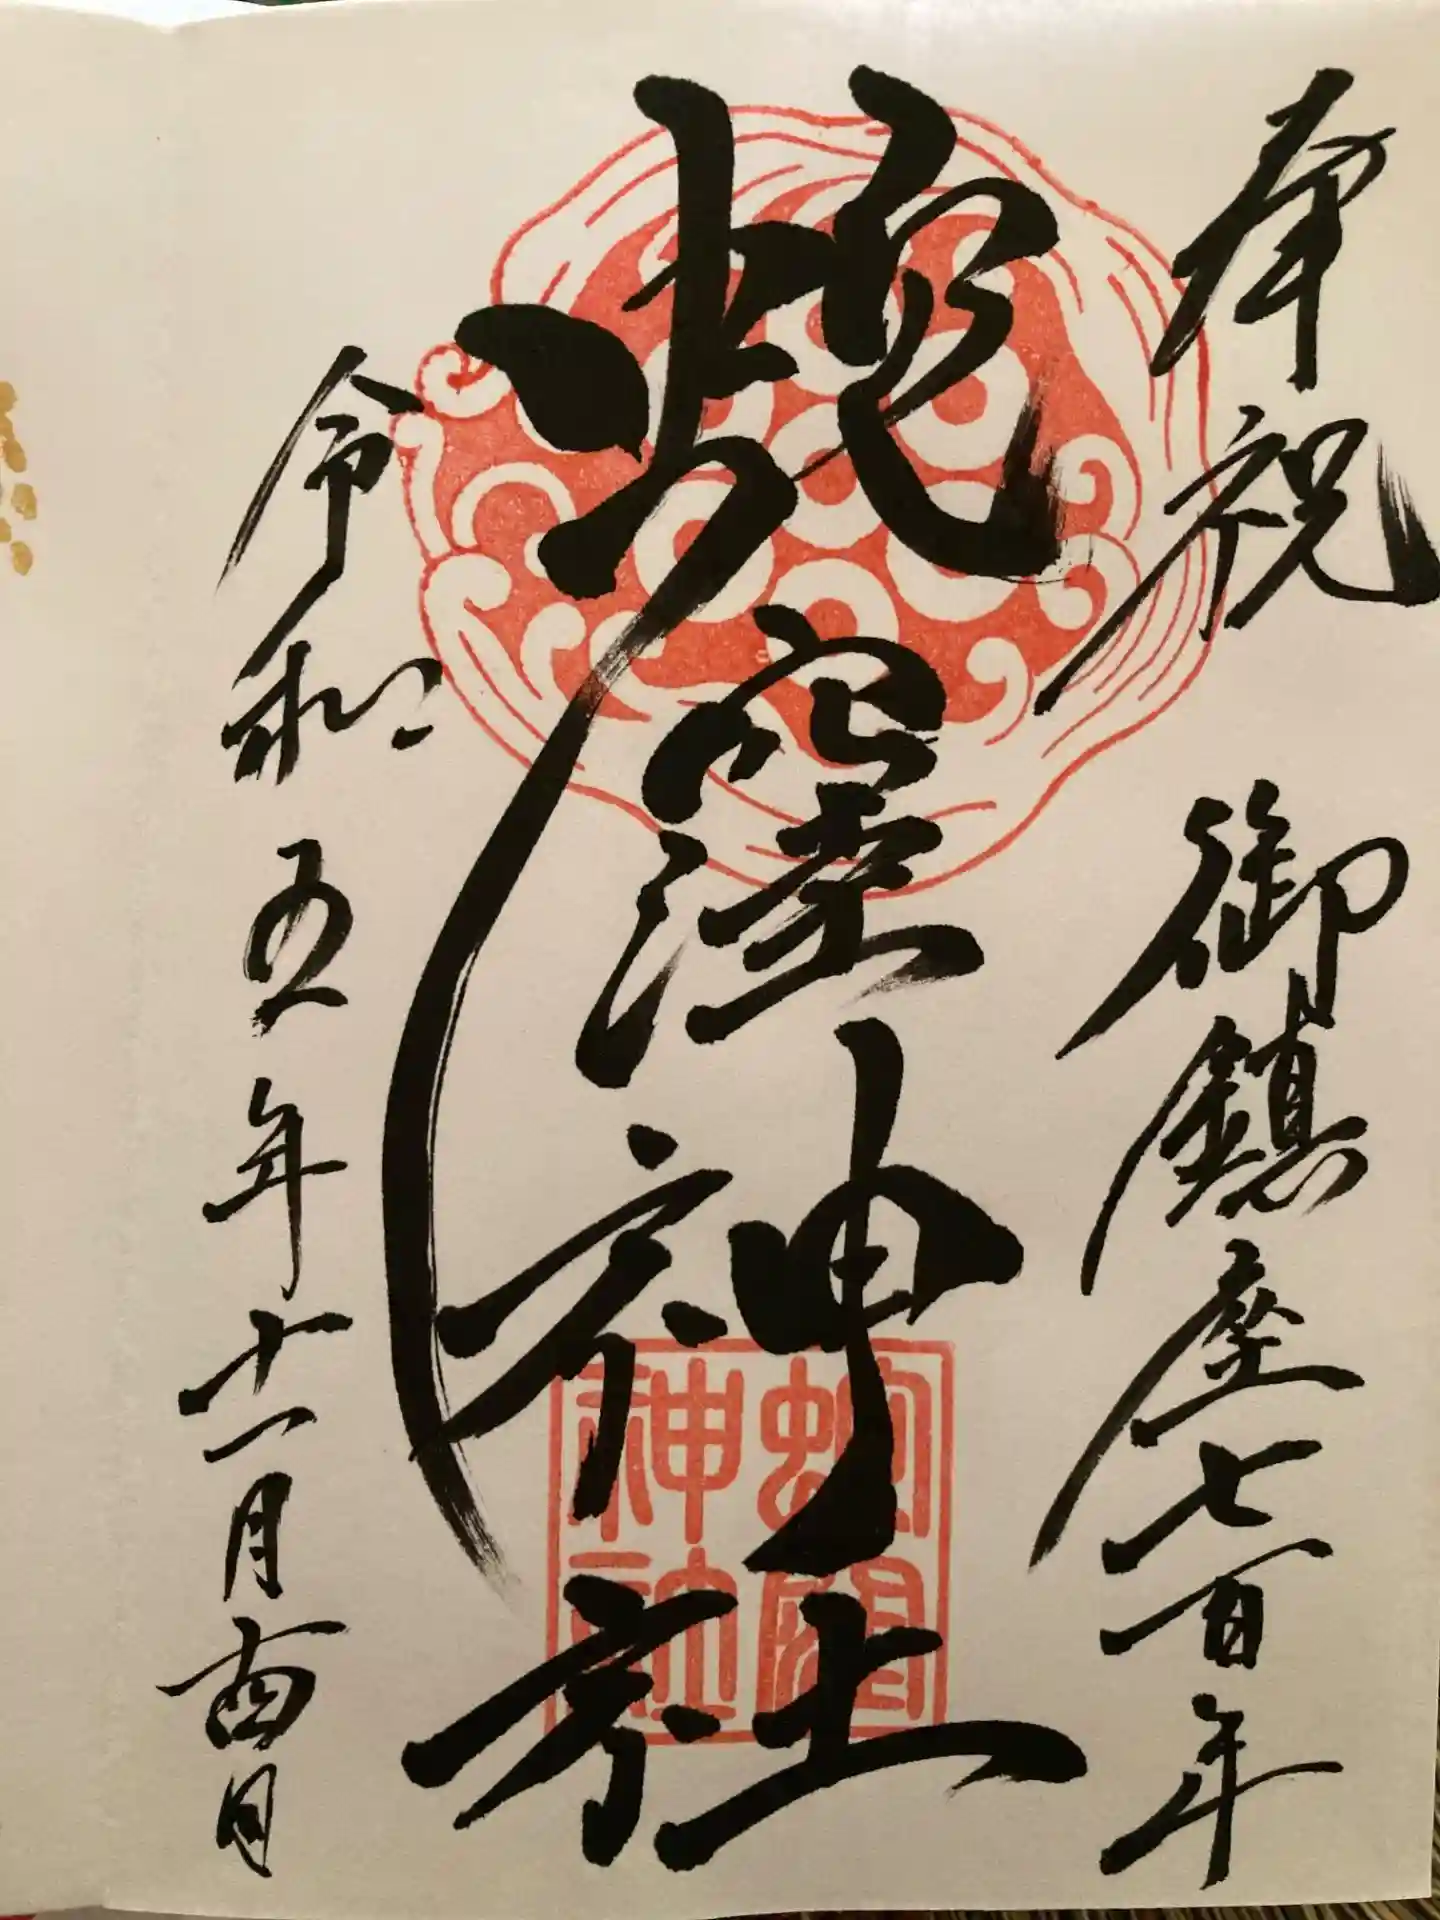 奉祝 御鎮座七百年
蛇窪神社
令和五年十一月酉日
蛇窪
神社